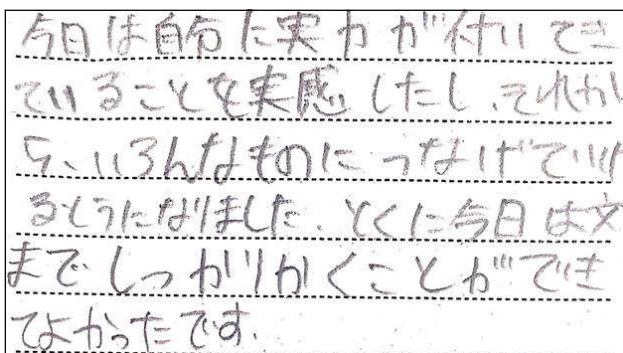 今日は自分に実力が付いてき
ていることを実感したし、それか
ら、いろんなものにつなげていけ
るようになりました、とくに今日は文
までしっかりかくことができ
てよかったです.